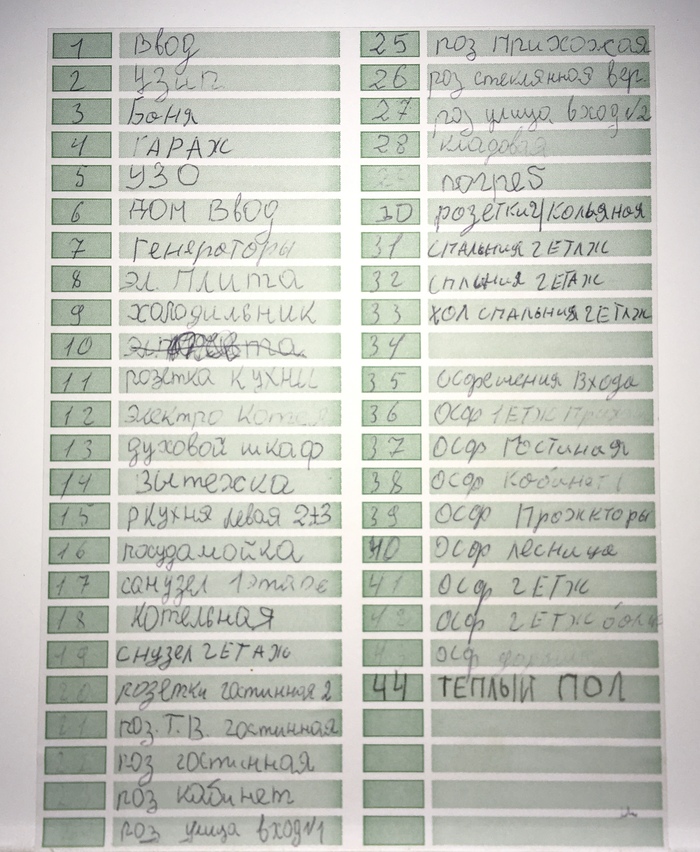 1 Ввод
2 Узип
3 Боня
4 ГАРАЖ
5 УЗО
6 ДОМ Ввод
7 Генераторы
8 эл. Плита
9 холодильник
10
11 розетка кухни
12 электро Котел
13 духовой шкаф
14 Зытежка
15 р кухня левая 2+3
16 посудамойка
17 санузел 1этаже
18 Котельная
19 снузел 2 ЕТАЖ
20 розетки гостинная 2
21 роз. Т.В. гостинная
2 роз гостинная
2 роз кабинет
роз улица вход №1
25 роз Прихожая
26 роз стеклянная вер.
27 роз улица вход №2
28 кладовая
29 погреб
30 розетки 2/Кольяная
31 СПАЛЬНИЯ 2 ЕТАЖ
32 СПЛЬНИЯ 2 ЕТАЖ
33 ХОЛ СПАЛЬНИЯ 2 ЕТАЖ
34
35 Осфешения Входа
36 Осф 1 ЕТЖ Прих
37 Осф Гостиная
38 Осф Кобинет
39 Осф Прожкторы
40 Осф леснице
41 Осф 2 ЕТЖ
42 Осф 2 ЕТЖ
4 осф
44 ТЕПЛЫЙ ПОЛ